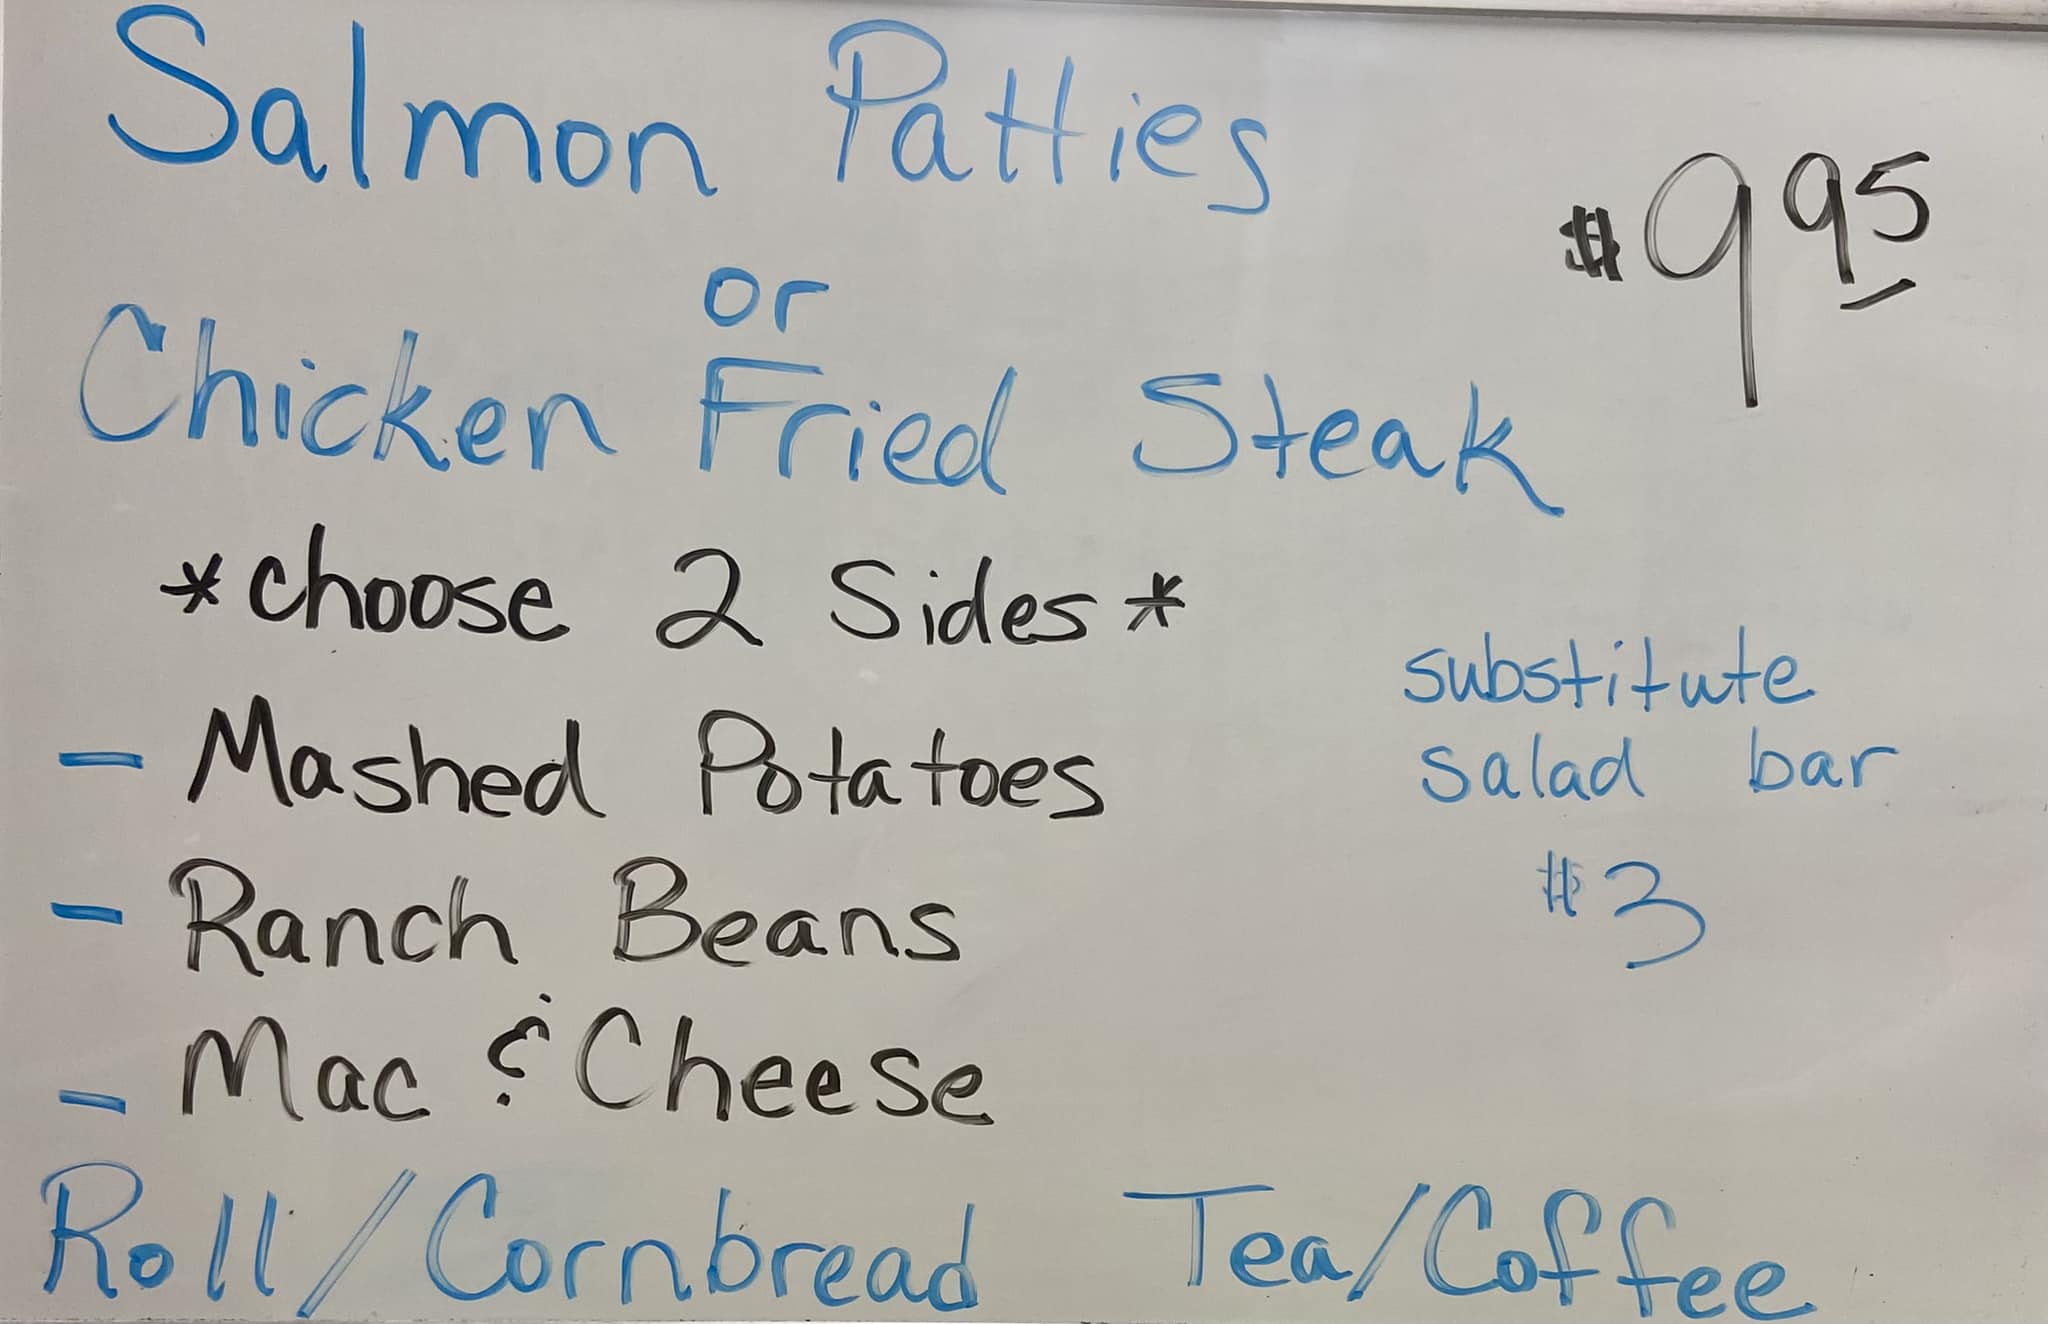 Salmon Patties
$9.95
or
Chicken Fried Steak
*choose 2 Sides*
- Mashed Potatoes
- Ranch Beans
- Mac & Cheese
substitute
salad bar
$3
Roll/Cornbread Tea/Coffee